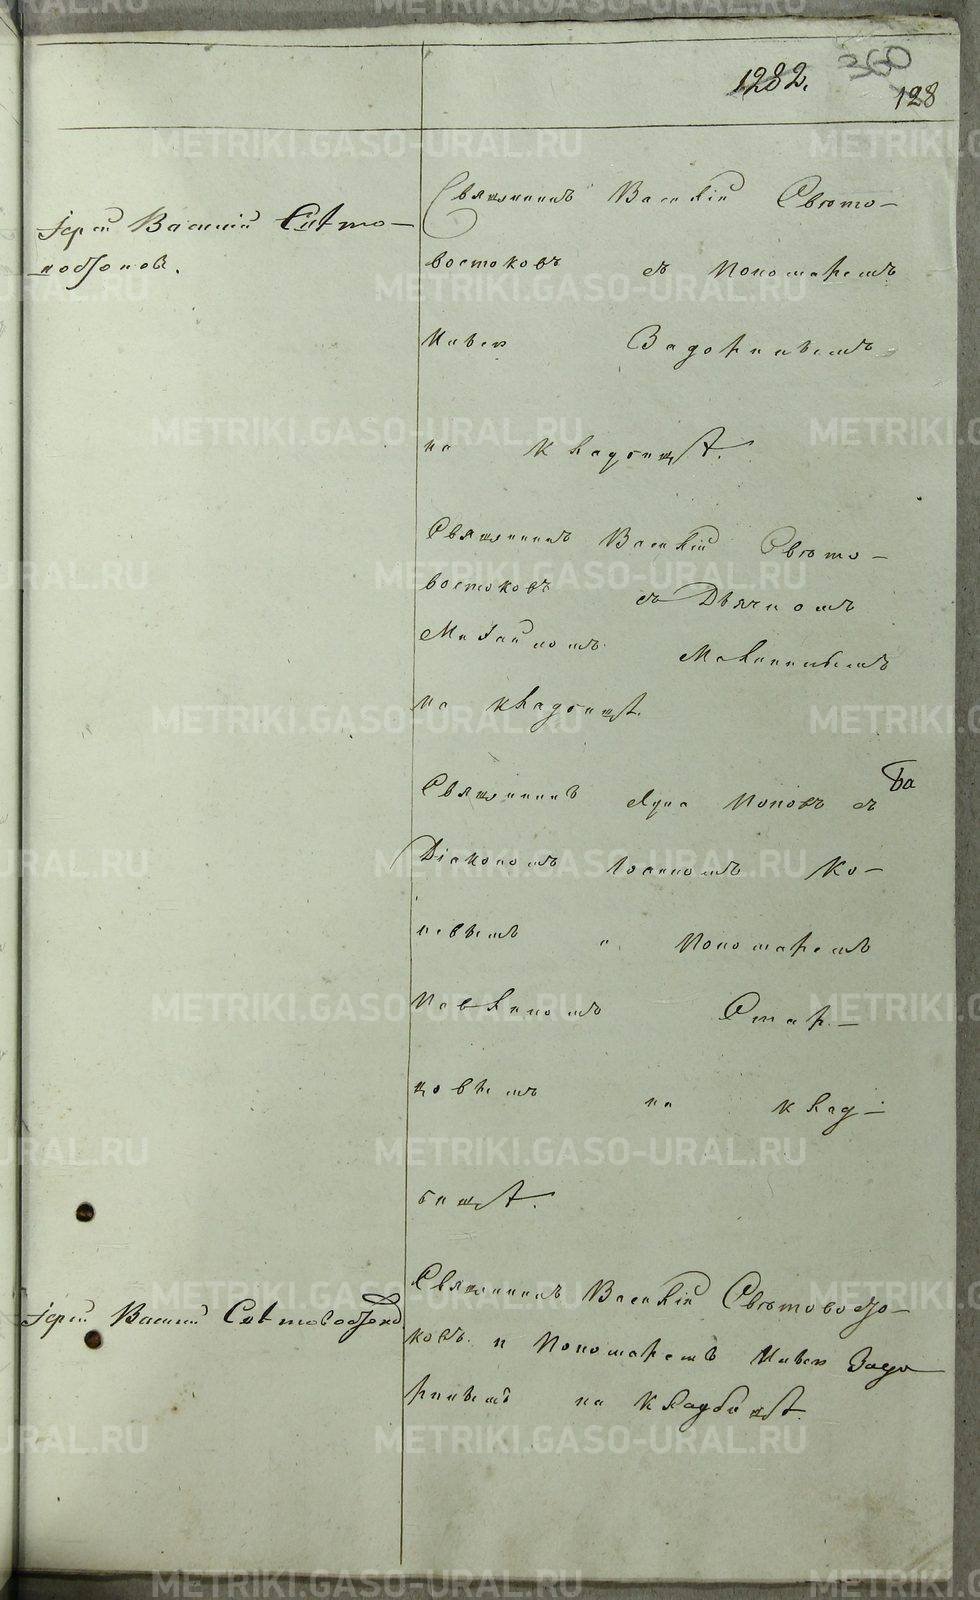 1282.
128
Іерей Василій Свѣто-
востоковъ.
Священникъ Василій Свѣто-
востоковъ съ Пономаремъ
Задоринымъ
на кладбищѣ.
Священникъ Василій Свѣто-
востоковъ съ Дьячкомъ
Михайломъ
на кладбищѣ.
Священникъ Лука Поповъ съ
Діакономъ Іоанномъ Ко-
певымъ и Пономаремъ
Павлиномъ Стар-
цовымъ на клад-
бищѣ.
Іерей Василій Свѣтовостоковъ
Священникъ Василій Свѣтовосто-
ковъ и Пономаремъ Задо
ринымъ на Кладбищѣ.
METRIKI.GASO-URAL.RU